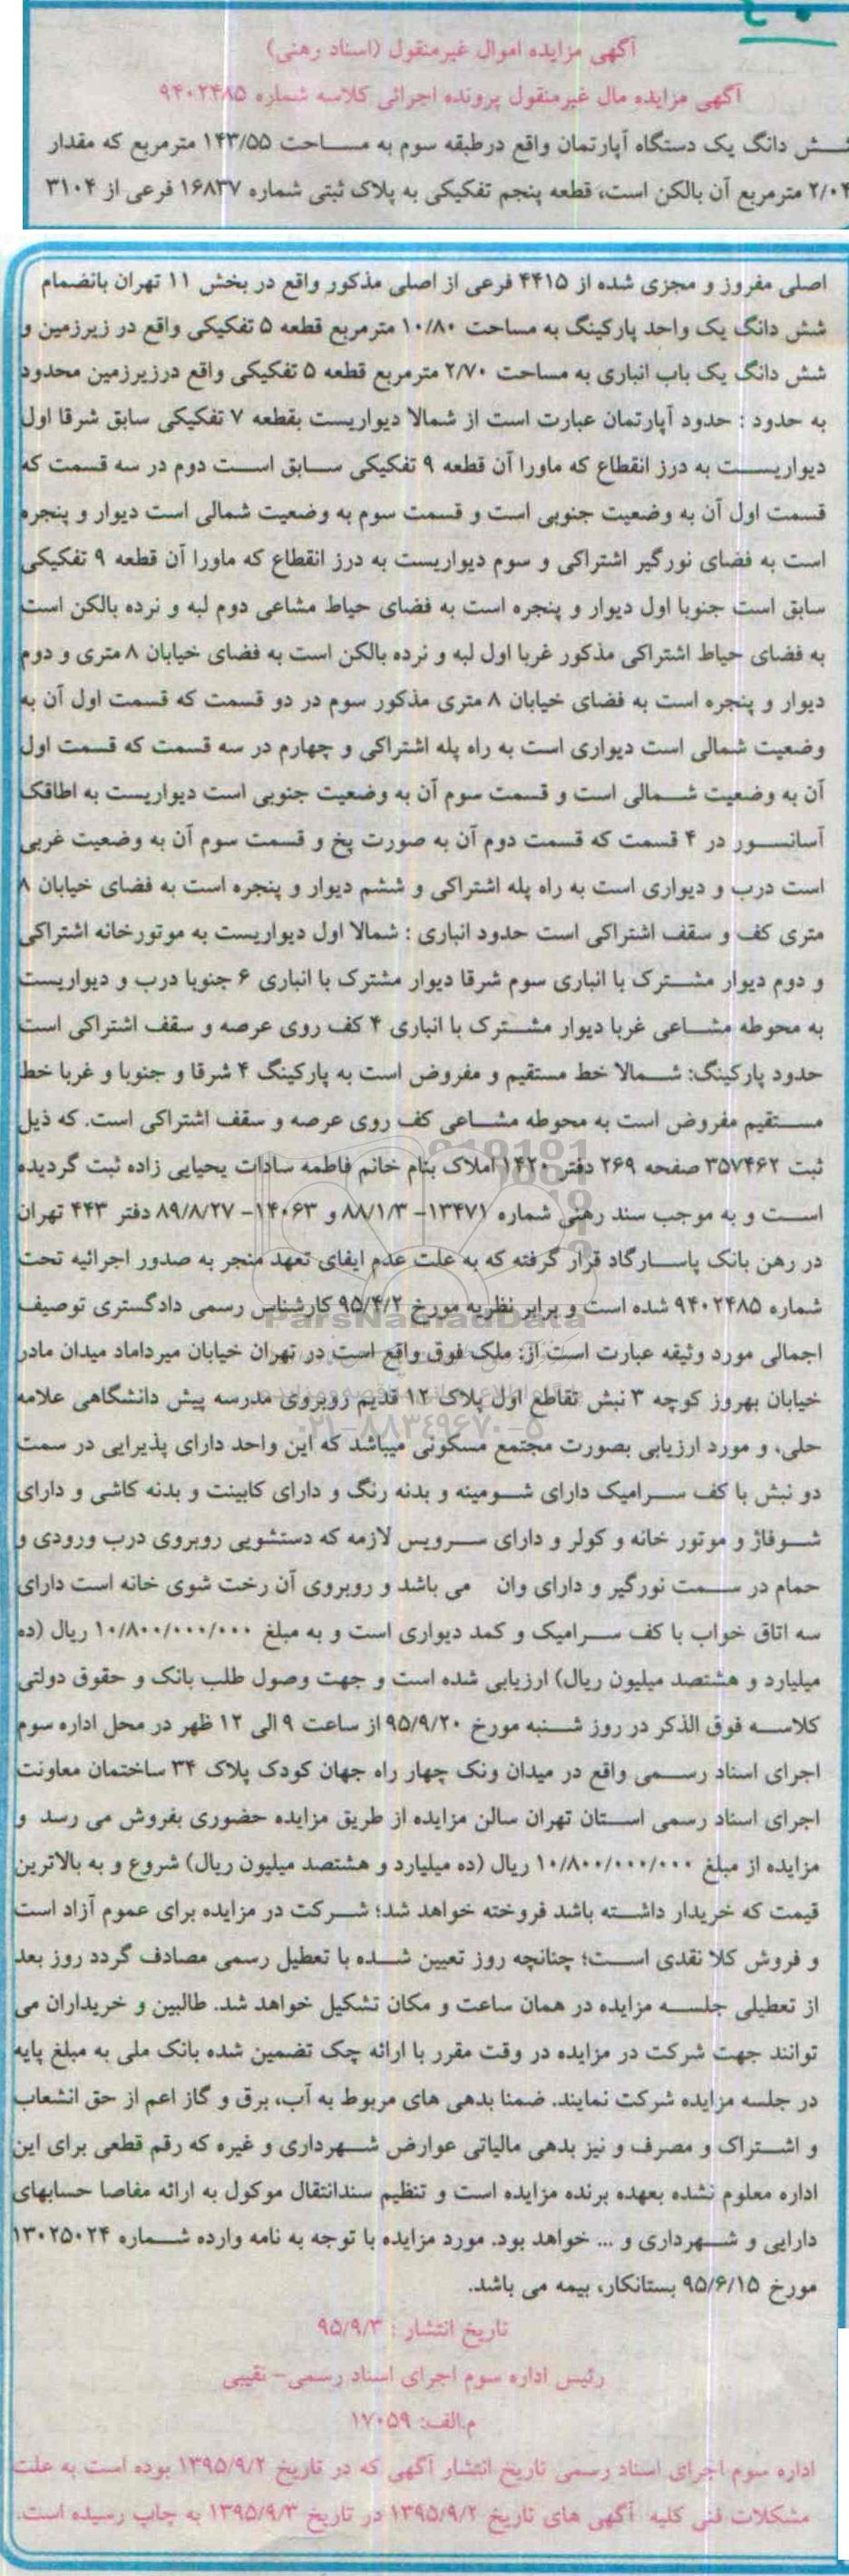 آگهی مزایده اموال غیرمنقول (اسناد رهنی)
آگهی مزایده مال غیرمنقول پرونده اجرائی کلاسه شماره ۹۴۰۲۴۸۵
شش دانگ یک دستگاه آپارتمان واقع درطبقه سوم به مساحت ۱۴۳/۵۵ مترمربع که مقدار
۲/۰۴ مترمربع آن بالکن است، قطعه پنجم تفکیکی به پلاک ثبتی شماره ۱۶۸۳۷ فرعی از ۳۱۰۴
اصلی مفروز و مجزی شده از ۴۴۱۵ فرعی از اصلی مذکور واقع در بخش ۱۱ تهران بانضمام
شش دانگ یک واحد پارکینگ به مساحت ۱۰/۸۰ مترمربع قطعه ۵ تفکیکی واقع در زیرزمین و
شش دانگ یک باب انباری به مساحت ۲/۷۰ مترمربع قطعه ۵ تفکیکی واقع درزیرزمین محدود
به حدود : حدود آپارتمان عبارت است از شمالا دیواریست بقطعه ۷ تفکیکی سابق شرقا اول
دیواریست به درز انقطاع که ماورا آن قطعه ۹ تفکیکی سابق است دوم در سه قسمت که
قسمت اول آن به وضعیت جنوبی است و قسمت سوم به وضعیت شمالی است دیوار و پنجره
است به فضای نورگیر اشتراکی و سوم دیواریست به درز انقطاع که ماورا آن قطعه ۹ تفکیکی
سابق است جنوبا اول دیوار و پنجره است به فضای حیاط مشاعی دوم لبه و نرده بالکن است
به فضای حیاط اشتراکی مذکور غربا اول لبه و نرده بالکن است به فضای خیابان ۸ متری و دوم
دیوار و پنجره است به فضای خیابان ۸ متری مذکور سوم در دو قسمت که قسمت اول آن به
وضعیت شمالی است دیواری است به راه پله اشتراکی و چهارم در سه قسمت که قسمت اول
آن به وضعیت شمالی است و قسمت سوم آن به وضعیت جنوبی است دیواریست به اطاقک
آسانسور در ۴ قسمت که قسمت دوم آن به صورت پخ و قسمت سوم آن به وضعیت غربی
است درب و دیواری است به راه پله اشتراکی و ششم دیوار و پنجره است به فضای خیابان ۸
متری کف و سقف اشتراکی است حدود انباری : شمالا اول دیواریست به موتورخانه اشتراکی
و دوم دیوار مشترک با انباری سوم شرقا دیوار مشترک با انباری ۶ جنوبا درب و دیواریست
به محوطه مشاعی غربا دیوار مشترک با انباری ۴ کف روی عرصه و سقف اشتراکی است
حدود پارکینگ: شمالا خط مستقیم و مفروض است به پارکینگ ۴ شرقا و جنوبا و غربا خط
مستقیم مفروض است به محوطه مشاعی کف روی عرصه و سقف اشتراکی است. که ذیل
ثبت ۳۵۷۴۶۲ صفحه ۲۶۹ دفتر ۱۴۲۰ املاک بنام خانم فاطمه سادات یحیایی زاده ثبت گردیده
است و به موجب سند رهنی شماره ۱۳۴۷۱- ۸۸/۱/۳ و ۱۴۰۶۳- ۸۹/۸/۲۷ دفتر ۴۴۳ تهران
در رهن بانک پاسارگاد قرار گرفته که به علت عدم ایفای تعهد منجر به صدور اجرائیه تحت
شماره ۹۴۰۲۴۸۵ شده است و برابر نظریه مورخ ۹۵/۴/۲ کارشناس رسمی دادگستری توصیف
اجمالی مورد وثیقه عبارت است از: ملک فوق واقع است در تهران خیابان میرداماد میدان مادر
خیابان بهروز کوچه ۳ نبش تقاطع اول پلاک ۱۲ قدیم روبروی مدرسه پیش دانشگاهی علامه
حلی، و مورد ارزیابی بصورت مجتمع مسکونی میباشد که این واحد دارای پذیرایی در سمت
دو نبش با کف سرامیک دارای شومینه و بدنه رنگ و دارای کابینت و بدنه کاشی و دارای
شوفاژ و موتور خانه و کولر و دارای سرویس لازمه که دستشویی روبروی درب ورودی و
حمام در سمت نورگیر و دارای وان می باشد و روبروی آن رخت شوی خانه است دارای
سه اتاق خواب با کف سرامیک و کمد دیواری است و به مبلغ ۱۰/۸۰۰/۰۰۰/۰۰۰ ریال (ده
میلیارد و هشتصد میلیون ریال) ارزیابی شده است و جهت وصول طلب بانک و حقوق دولتی
کلاسه فوق الذکر در روز شنبه مورخ ۹۵/۹/۲۰ از ساعت ۹ الی ۱۲ ظهر در محل اداره سوم
اجرای اسناد رسمی واقع در میدان ونک چهار راه جهان کودک پلاک ۳۴ ساختمان معاونت
اجرای اسناد رسمی استان تهران سالن مزایده از طریق مزایده حضوری بفروش می رسد و
مزایده از مبلغ ۱۰/۸۰۰/۰۰۰/۰۰۰ ریال (ده میلیارد و هشتصد میلیون ریال) شروع و به بالاترین
قیمت که خریدار داشته باشد فروخته خواهد شد؛ شرکت در مزایده برای عموم آزاد است
و فروش کلا نقدی است؛ چنانچه روز تعیین شده با تعطیل رسمی مصادف گردد روز بعد
از تعطیلی جلسه مزایده در همان ساعت و مکان تشکیل خواهد شد. طالبین و خریداران می
توانند جهت شرکت در مزایده در وقت مقرر با ارائه چک تضمین شده بانک ملی به مبلغ پایه
در جلسه مزایده شرکت نمایند. ضمنا بدهی های مربوط به آب، برق و گاز اعم از حق انشعاب
و اشتراک و مصرف و نیز بدهی مالیاتی عوارض شهرداری و غیره که رقم قطعی برای این
اداره معلوم نشده بعهده برنده مزایده است و تنظیم سندانتقال موکول به ارائه مفاصا حسابهای
دارایی و شهرداری و ... خواهد بود. مورد مزایده با توجه به نامه وارده شماره ۱۳۰۲۵۰۲۴
مورخ ۹۵/۶/۱۵ بستانکار، بیمه می باشد.
تاریخ انتشار : ۹۵/۹/۳
رئیس اداره سوم اجرای اسناد رسمی- نقیبی
م.الف: ۱۷۰۵۹
اداره سوم اجرای اسناد رسمی تاریخ انتشار آگهی که در تاریخ ۱۳۹۵/۹/۲ بوده است به علت
مشکلات فنی کلیه آگهی های تاریخ ۱۳۹۵/۹/۲ در تاریخ ۱۳۹۵/۹/۳ به چاپ رسیده است.
ParsNamadData
۰۲۱-۸۸۳۴۹۶۷۰-۵